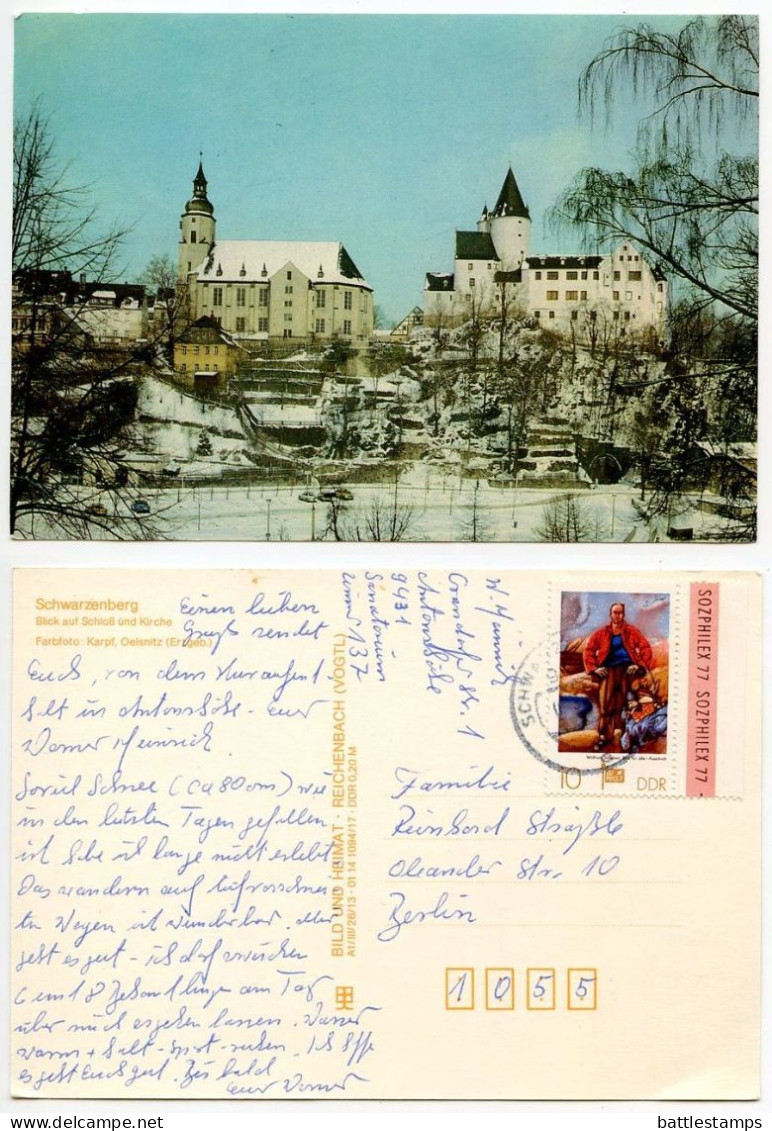 Schwarzenberg
Blick auf Schloß und Kirche
Farbfoto: Karpf, Oelsnitz (Erzgeb.)
Einen lieben
Gruß sendet
Euch, von dem Kuraufent
halt in Antonshöhe - euer
Werner Heinrich
Soviel Schnee (ca 80 cm) wie
in den letzten Tagen gefallen
ist habe ich lange nicht erlebt.
Das wandern auf
ten Wegen ist wunderbar. Aber
geht es gut - ich darf zwischen
6 und 8 Behandlungen am Tag
über mich ergehen lassen. Wasser
warm + kalt - Sport - ruhen. Ich hoffe
es geht Euch gut. Bis bald
euer Werner
W.
Str. 1
Antonshöhe
9431
Sanatorium
Zimmer 137
BILD UND HEIMAT · REICHENBACH (VOGTL)
A1/III/26/13 · 01 14 1094/17 · DDR 0,20 M
SCHW
10
DDR
SOZPHILEX 77 SOZPHILEX 77
Familie
Reinhard Sträßle
Oleander Str. 10
Berlin
1055
delcampe.net
battlestamps